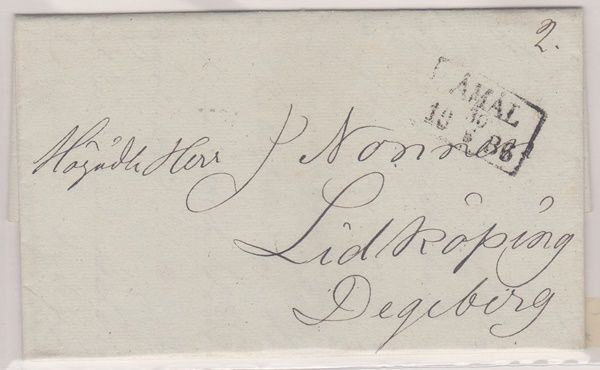 2.
ÅMÅL
30
19 5 36
Högädle Herr J Nonnen
Lidköping
Degeberg